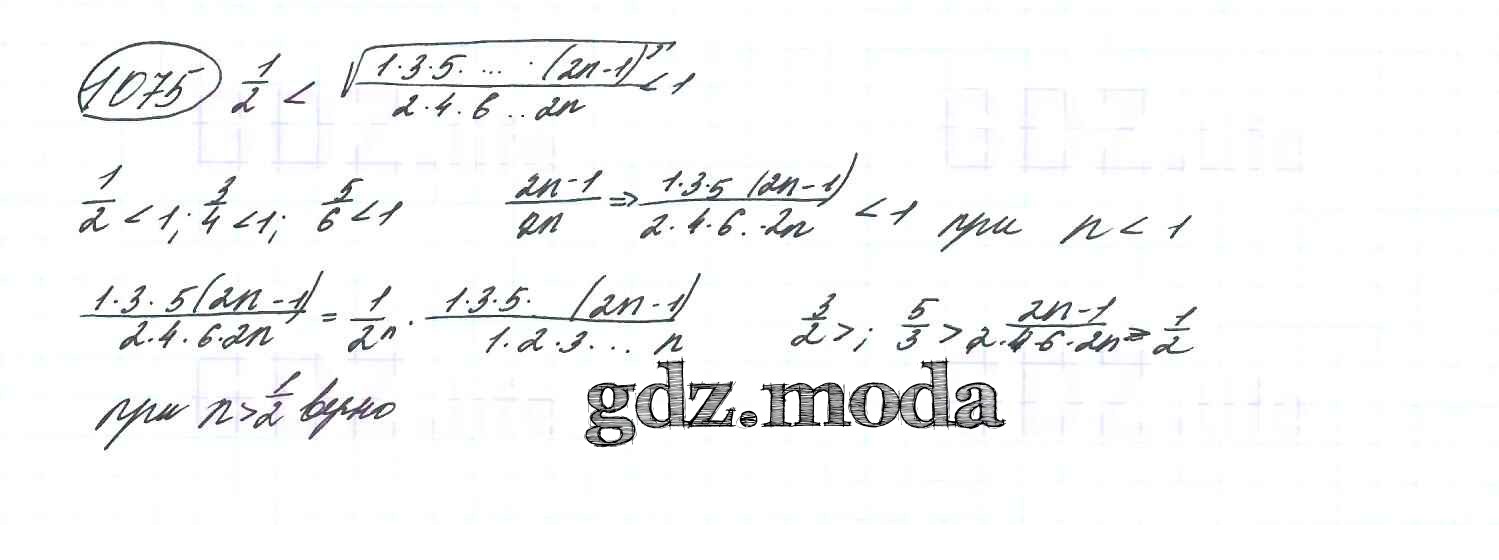 1075 1/2 < √(1·3·5·...·(2n-1))/(2·4·6...2n) < 1
1/2 < 1; 3/4 < 1; 5/6 < 1 (2n-1)/2n ⇒ (1·3·5 (2n-1))/(2·4·6...2n) < 1 при n < 1
(1·3·5(2n-1))/(2·4·6·2n) = 1/2ⁿ · (1·3·5· (2n-1))/(1·2·3·... n) 3/2 >; 5/3 > (2n-1)/(2·4·6·2n) ⇒ 1/2
при n > 1/2 верно
gdz.moda